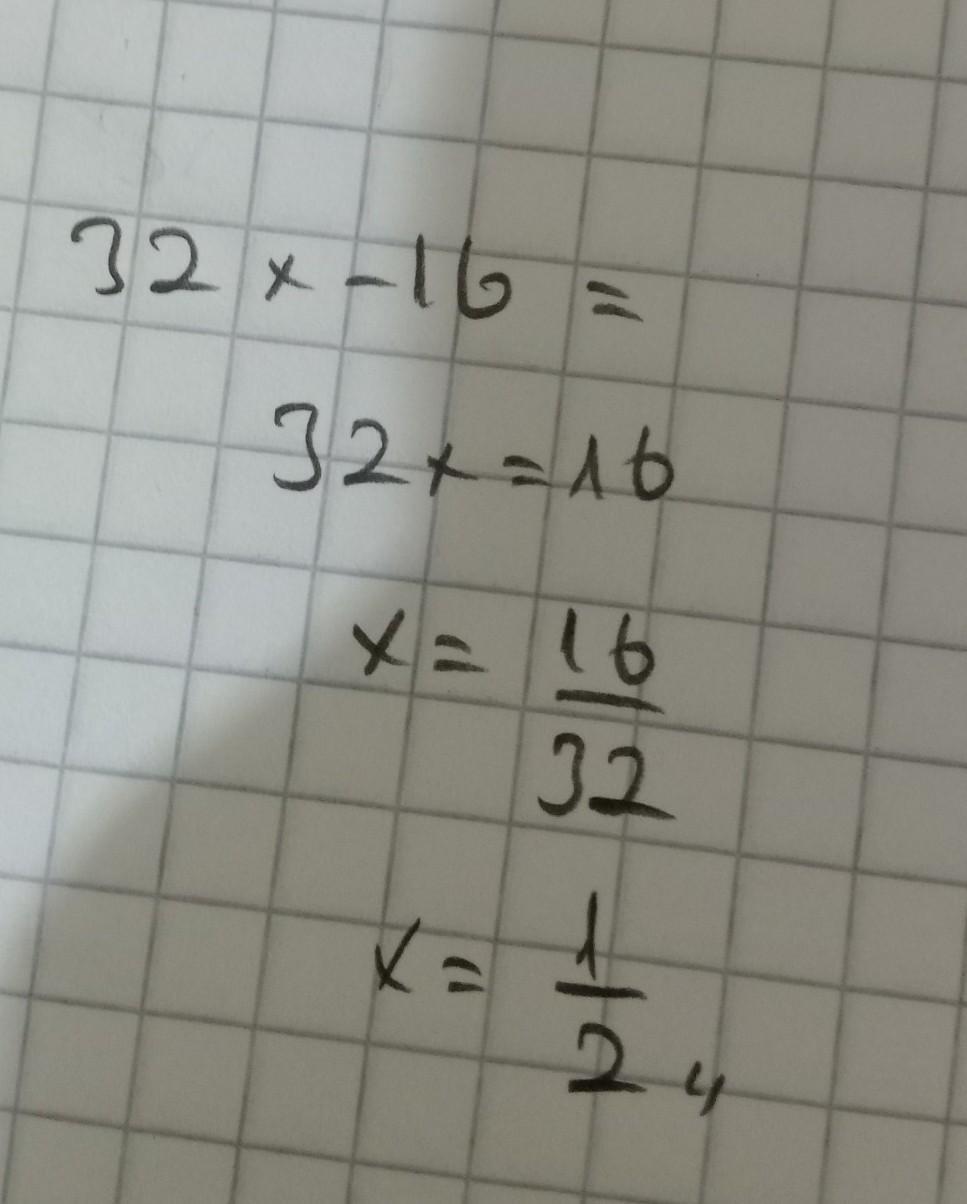 32x-16=
32x=16
x=16/32
x=1/2 ,,